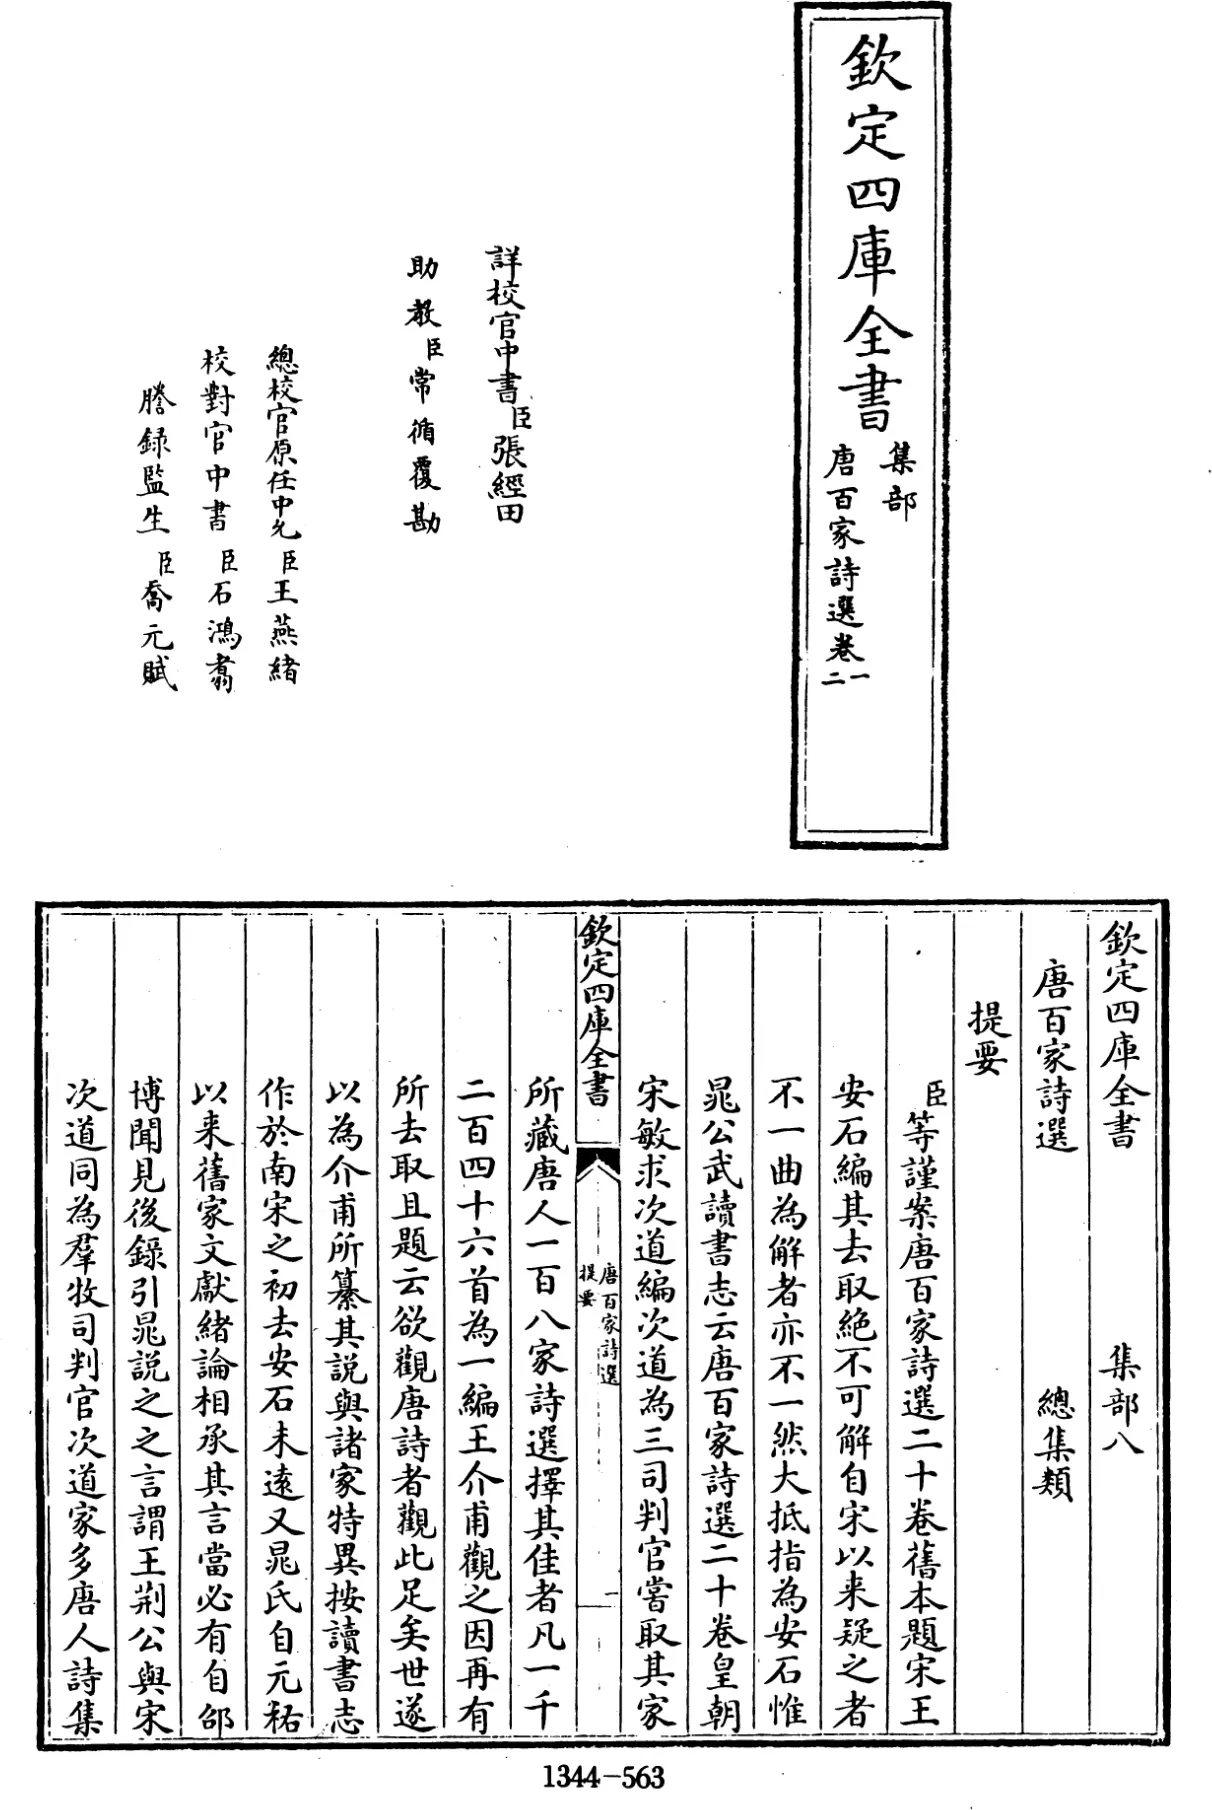 欽定四庫全書
集部
唐百家詩選卷一二
詳校官中書臣張經田
助教臣常循覆勘
總校官原任中允臣王燕緒
校對官中書臣石鴻翥
謄錄監生臣喬元賦
欽定四庫全書 集部八
唐百家詩選 總集類
提要
臣等謹案唐百家詩選二十卷舊本題宋王
安石編其去取絕不可解自宋以来疑之者
不一曲為解者亦不一然大抵指為安石惟
晁公武讀書志云唐百家詩選二十卷皇朝
宋敏求次道編次道為三司判官嘗取其家
欽定四庫全書
唐百家詩選
提要
一
所藏唐人一百八家詩選擇其佳者凡一千
二百四十六首為一編王介甫觀之因再有
所去取且題云欲觀唐詩者觀此足矣世遂
以為介甫所纂其說與諸家特異按讀書志
作於南宋之初去安石未遠又晁氏自元祐
以来舊家文獻緒論相承其言當必有自邵
博聞見後錄引晁說之之言謂王荆公與宋
次道同為羣牧司判官次道家多唐人詩集
1344-563